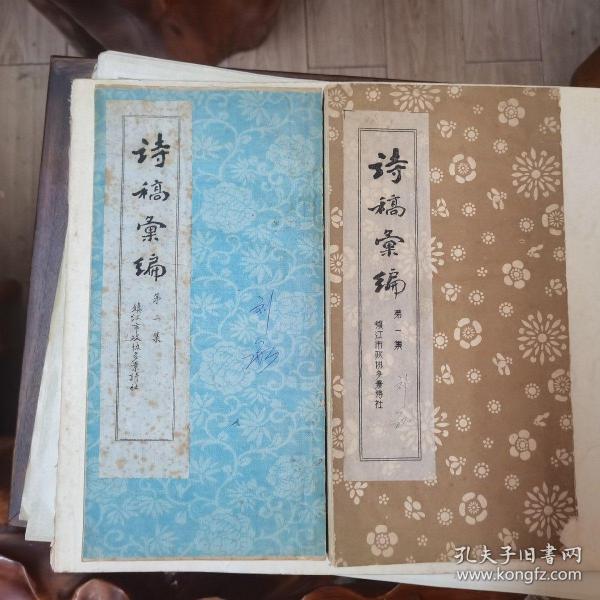 诗稿彙编
第二集
镇江市政协多景诗社
刘
诗稿彙编
第一集
镇江市政协多景诗社
刘
孔夫子旧书网
www.kongfz.com